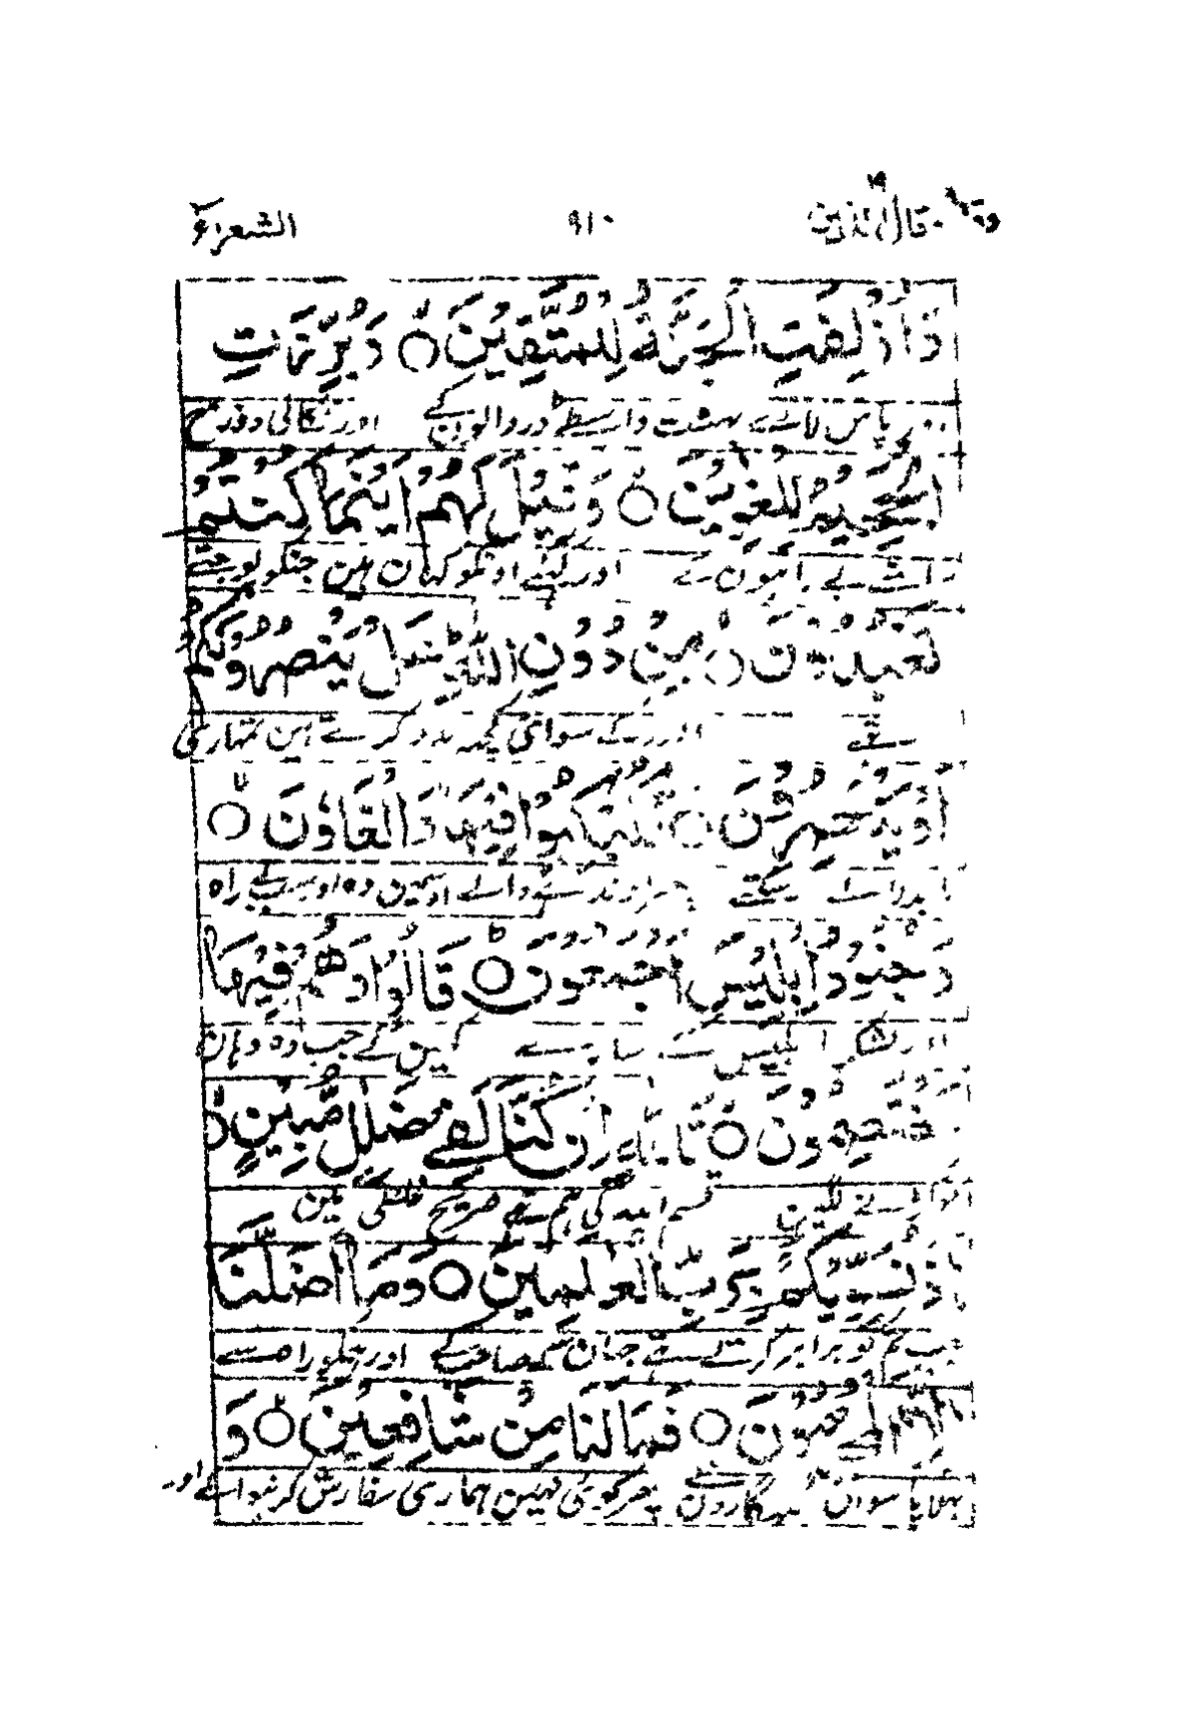 وقال الذين ١٩ ٩١٠ الشعراء
وَاُزْلِفَتِ الْجَنَّةُ لِلْمُتَّقِيْنَ ○ وَبُرِّزَتِ
پاس لائے بہشت واسطے ڈر والوں کے اور نکالی دوزخ
الْجَحِيْمُ لِلْغٰوِيْنَ ○ وَقِيْلَ لَهُمْ اَيْنَمَا كُنْتُمْ
بے راہوں کے اور کہئے اونکو کہان ہین جنکو پوجتے
تَعْبُدُوْنَ ○ مِنْ دُوْنِ اللّٰهِ هَلْ يَنْصُرُوْنَكُمْ
تھے اللہ کے سوائی کچھہ مدد کرتے ہین تمہاری
اَوْ يَنْتَصِرُوْنَ ○ فَكُبْكِبُوْا فِيْهَا وَالْغَاوٗنَ ○
یا بدلا لے سکتے پھر اوندھے ڈالے اوسمین وہ اور سب بے راہ
وَجُنُوْدُ اِبْلِيْسَ اَجْمَعُوْنَ ○ قَالُوْا وَهُمْ فِيْهَا
اور لشکر ابلیس کے سارے کہین گے جب وہ وہان
يَخْتَصِمُوْنَ ○ تَاللّٰهِ اِنْ كُنَّا لَفِيْ ضَلٰلٍ مُّبِيْنٍ ○
لگین قسم اللہ کی ہم تھے صریح غلطی مین
اِذْ نُسَوِّيْكُمْ بِرَبِّ الْعٰلَمِيْنَ ○ وَمَا اَضَلَّنَا
جب تم کو برابر کرتے تھے جہان کے صاحب کے اور ہمکو راہ سے
اِلَّا الْمُجْرِمُوْنَ ○ فَمَا لَنَا مِنْ شَافِعِيْنَ ○ وَ
بھلایا سو ان گنہگارون نے پھر کوئی نہین ہماری سفارش کرنیوالے اور